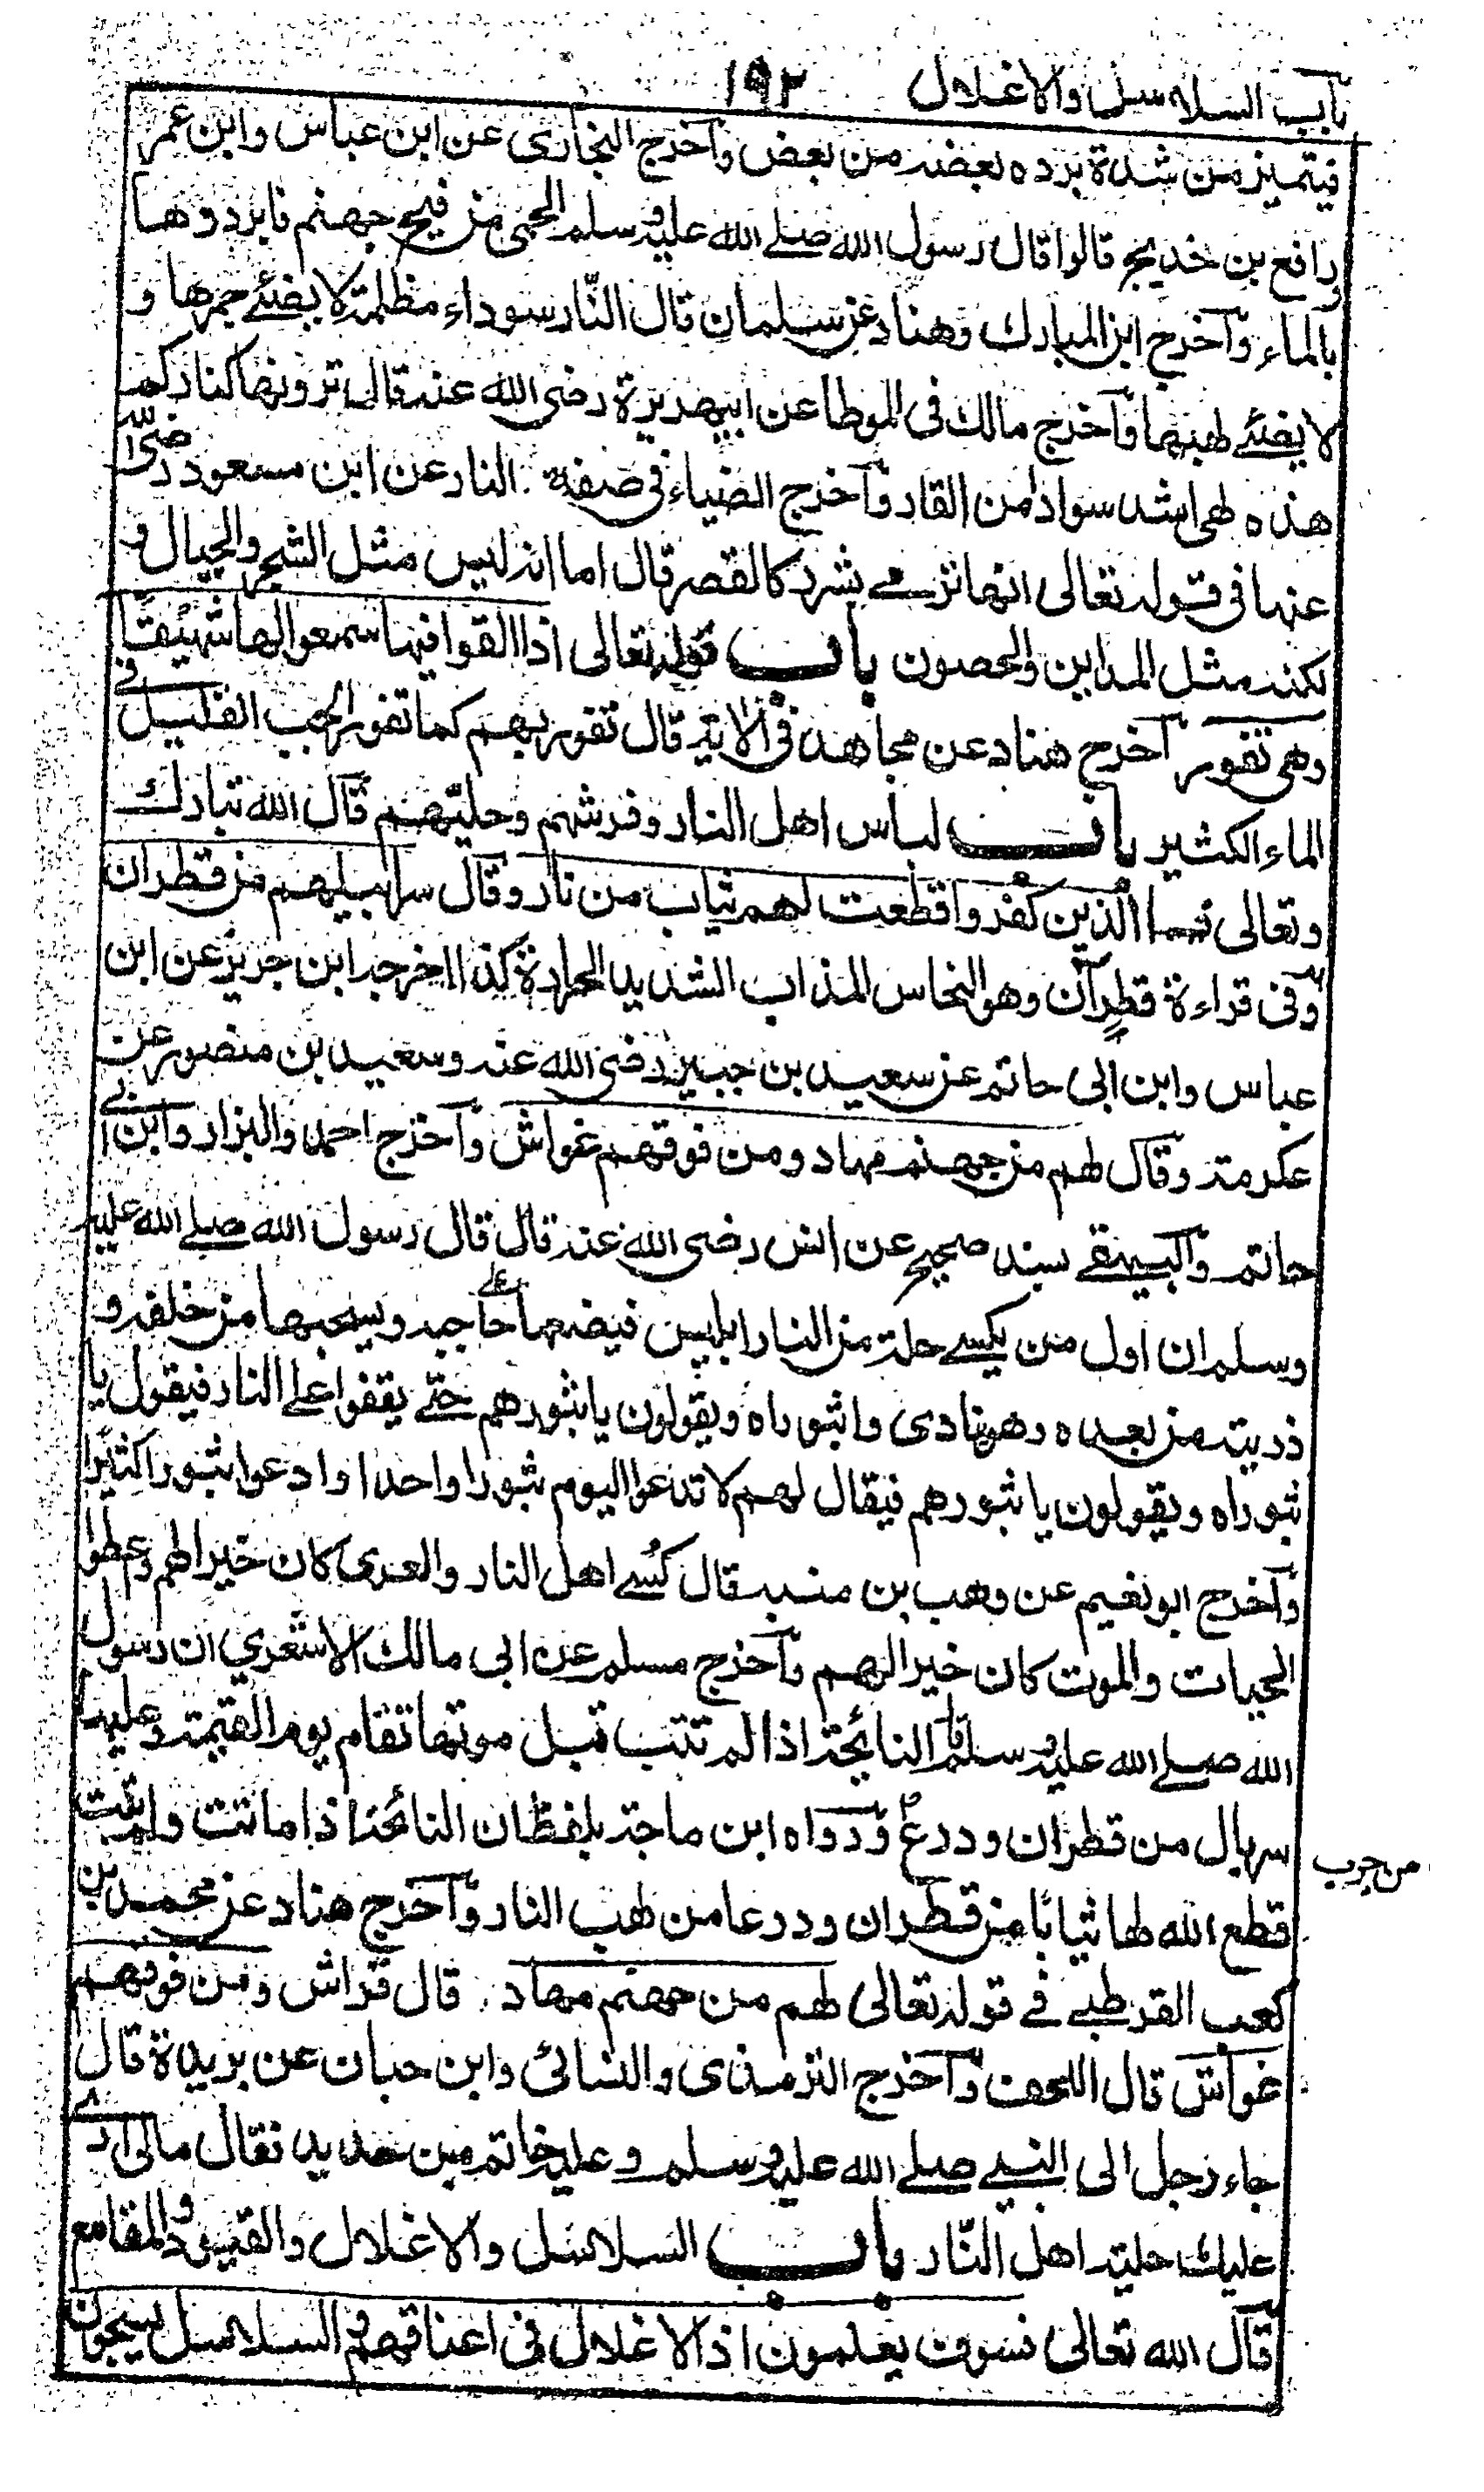 باب السلاسل والاغلال ١٩٢
فيتميز من شدة برده بعضه من بعض وآخرج البخارى عن ابن عباس وابن عمر
ورافع بن خديج قالوا قال رسول الله صلے الله عليه وسلم الحمى من فيح جهنم فابردوها
بالماء وآخرج ابن المبارك وهناد عن سلمان قال النّار سوداء مظلمة لا يضئے جمرها و
لا يضئے لهبها وآخرج مالك فى الموطا عن ابيهريرة رضى الله عنه قال ترونها كناركم
هذه لهى اشد سوادا من القار وآخرج الضياء فى صفة النار عن ابن مسعود رضى الله
عنها فى قوله تعالى انها ترمے بشرر كالقصر قال اما انه ليس مثل الشجر والجبال و
لكنه مثل المداين والحصون باب قوله تعالى اذا القوا فيها سمعوا لها شهيقًا
وهى تفور آخرج هناد عن مجاهد فى الاية قال تفور بهم كما تفور الحب القليل فے
الماء الكثير باب لباس اهل النار وفرشهم وحليتهم قال الله تبارك
وتعالى فالذين كفروا قطعت لهم ثياب من نار وقال سرابيلهم من قطران
وفى قراءة قطرآن وهو النحاس المذاب الشديد الحرارة كذا اخرجه ابن جرير عن ابن
عباس وابن ابى حاتم عن سعيد بن جبير رضى الله عنه وسعيد بن منصور عن
عكرمة وقال لهم من جهنم مهاد ومن فوقهم غواش وآخرج احمد والبزار وابن ابے
حاتم والبيهقے بسند صحيح عن انس رضى الله عنه قال قال رسول الله صلے الله عليه
وسلم ان اول من يكسے حلة من النار ابليس فيضعها علے حاجبه ويسحبها من خلفه و
ذريته من بعده وهو ينادى واثبوراه ويقولون يا ثبورهم حتے يقفوا علے النار فيقول يا
ثبوراه ويقولون يا ثبورهم فيقال لهم لا تدعوا اليوم ثبورا واحدا وادعوا ثبورا كثيرًا
وآخرج ابو نعيم عن وهب بن منبه قال كُسے اهل النار والعرى كان خيرا لهم وعطوا
الحيات والموت كان خيرا لهم وآخرج مسلم عن ابى مالك الاشعري ان رسول
الله صلے الله عليه وسلم قال النائحة اذا لم تتب قبل موتها تقام يوم القيمة وعليها
سربال من قطران ودرع ورواه ابن ماجة بلفظ ان النائحة اذا ماتت ولم تتب
من جرب
قطع الله لها ثيابًا من قطران ودرعا من لهب النار وآخرج هناد عن محمد بن
كعب القرظے فے قوله تعالى لهم من جهنم مهاد قال فراش ومن فوقهم
غواش قال اللحف وآخرج الترمذى والنسائى وابن حبان عن بريدة قال
جاء رجل الى النبے صلے الله عليه وسلم وعليه خاتم من حديد فقال مالى ارے
عليك حلية اهل النّار باب السلاسل والاغلال والقيود والمقامع
قال الله تعالى فسوف يعلمون اذ الاغلال فى اعناقهم والسلاسل يسحبون